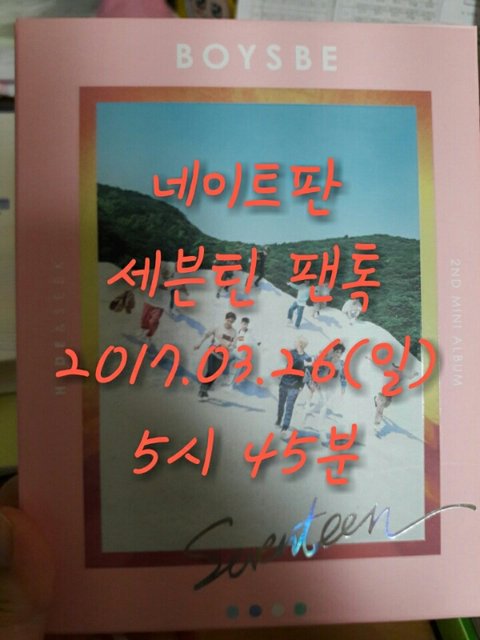 BOYSBE
네이트판
세븐틴 팬톡
2017.03.26(일)
5시 45분
2ND MINI ALBUM
Seventeen